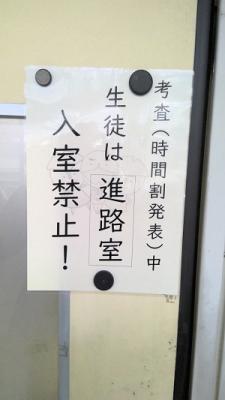 考査(時間割発表)中
生徒は進路室
入室禁止!